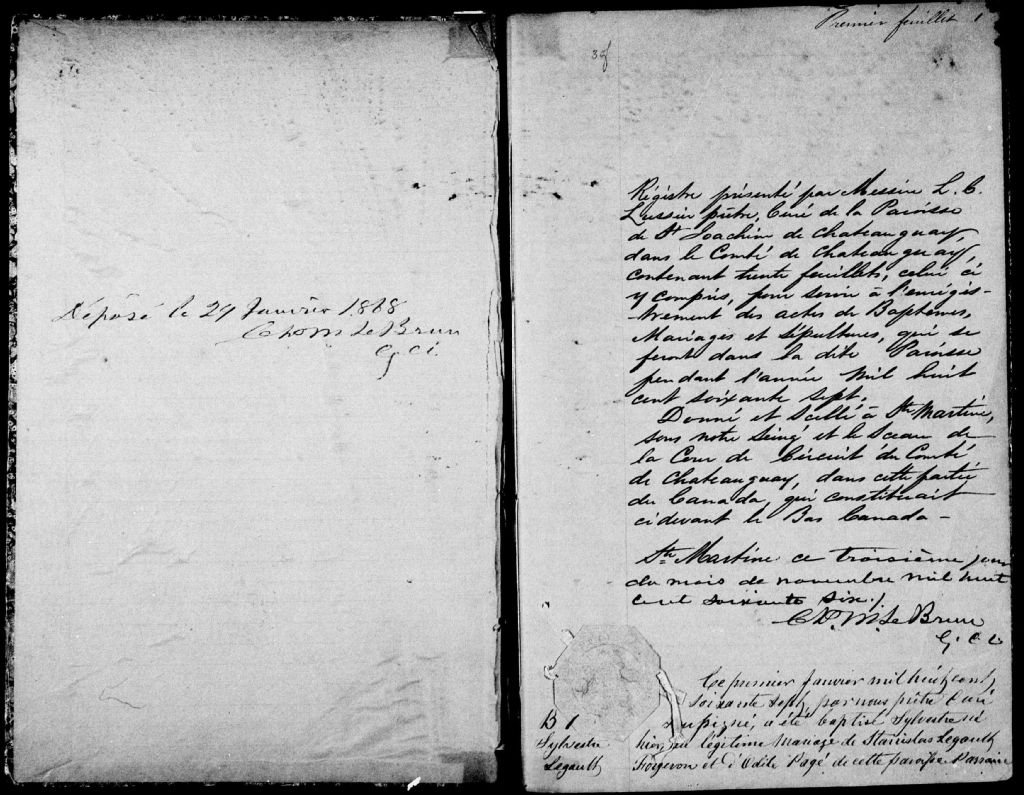 Déposé le 29 Janvier 1868
LeBrun
G. C. C.
Premier feuillet 1
Régistre présenté par Messire L. C.
Lussier prêtre, Curé de la Paroisse
de St Joachim de Chateauguay,
dans le Comté de Chateauguay,
contenant trente feuillets, celui ci
y compris, pour servir à l'enrégis-
trement des actes de Baptêmes,
Mariages et Sépultures, qui se
feront dans la dite Paroisse
pendant l'année Mil huit
cent soixante sept.
Donné et Scellé à Ste Martine,
sous notre Seing et le Sceau de
la Cour de Circuit du Comté
de Chateauguay, dans cette partie
du Canada, qui constituait
cidevant le Bas Canada -
Ste Martine ce troisième jour
du mois de novembre mil huit
cent soixante six./
LeBrun
G. C. C.
B 1
Sylvestre
Legault
Le premier Janvier mil huit cent
soixante sept, par nous prêtre Curé
soussigné, a été baptisé Sylvestre né
hier, du légitime mariage de Stanislas Legault
Forgeron et d'Odile Pagé de cette paroisse Parrain